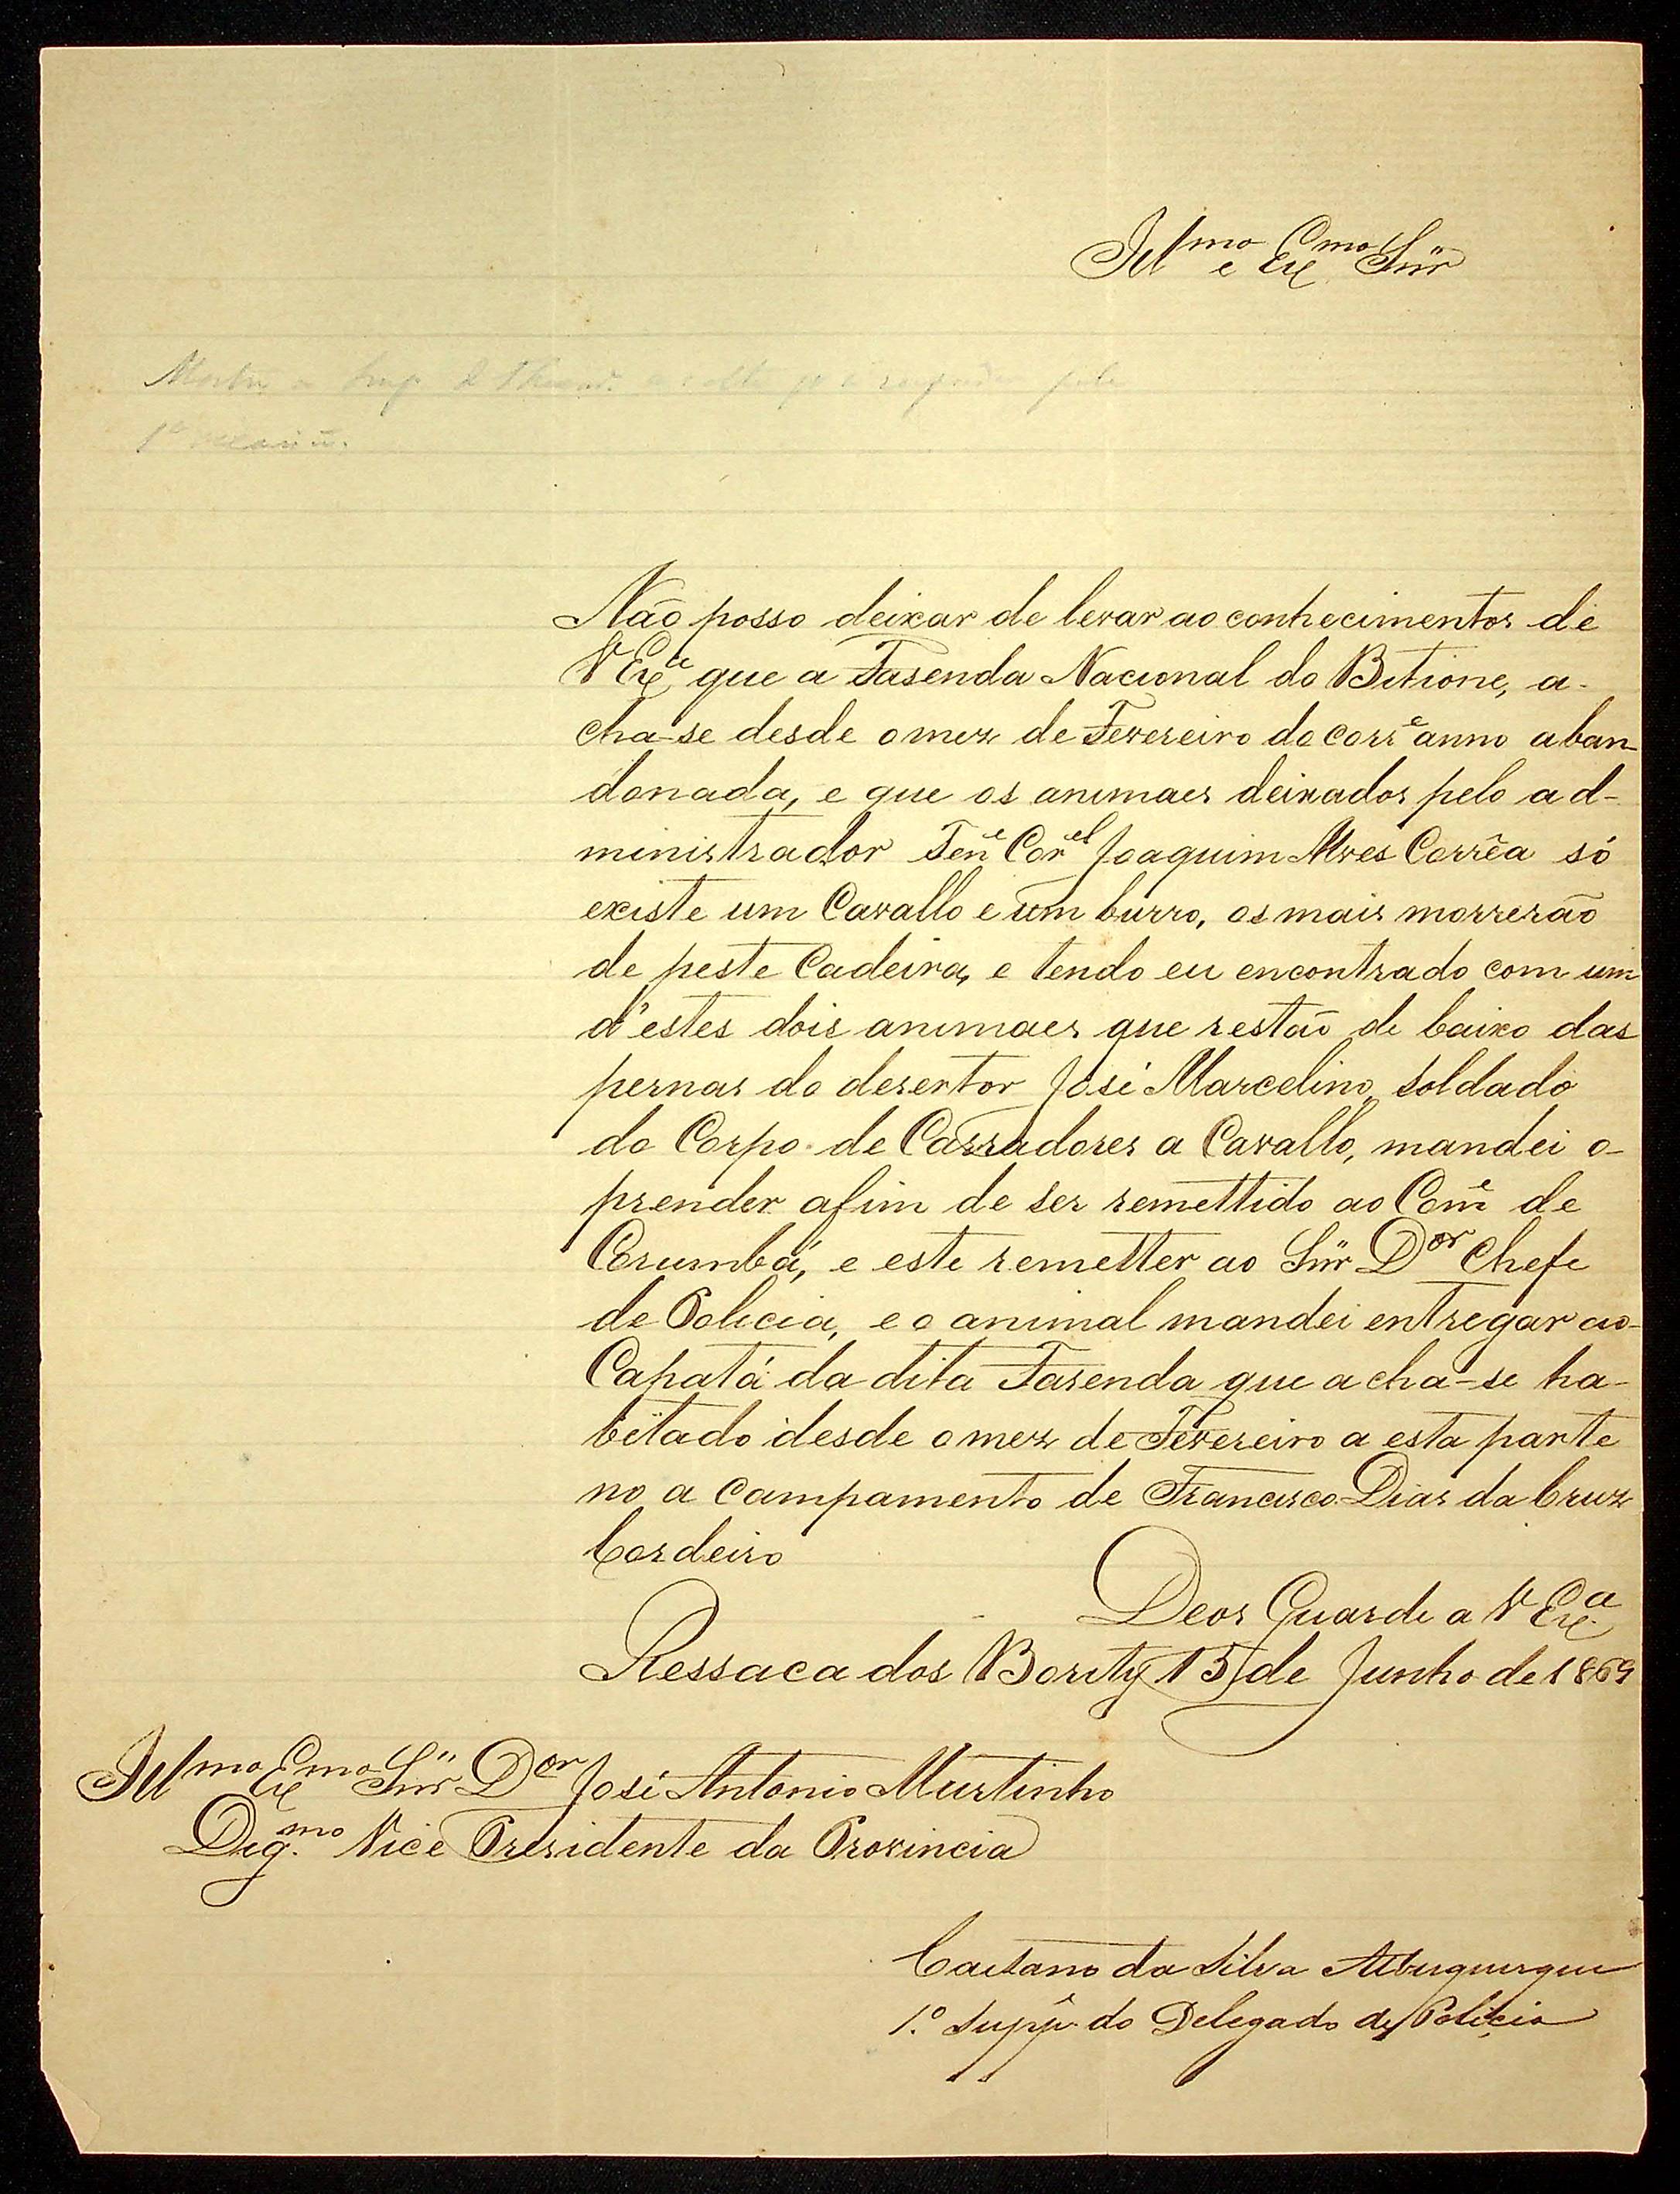 Ill^mo e Ex^mo Snr̃
Não posso deixar de levar ao conhecimentos de
V Ex^a que a Fasenda Nacional do Betione, a-
cha-se desde o mez de Fevereiro do corr^e anno aban-
donada, e que os animaes deixados pelo ad-
ministrador Ten^e Cor^el Joaquim Alves Corrêa só
existe um Cavallo e um burro, os mais morrerão
de peste Cadeira, e tendo eu encontrado com um
d'estes dois animaes que restão de baixo das
pernas do desertor José Marcelino, soldado
do Corpo de Cassadores a Cavallo, mandei o-
prender afim de ser remettido ao Com^e de
Corumbá, e este remetter ao Snr̃ D^or Chefe
de Policia, e o animal mandei entregar ao-
Capatá da dita Fasenda que acha-se ha-
bitado desde o mez de Fevereiro a esta parte
no a campamento de Francisco Dias da Cruz
Cordeiro
Deos Guarde a V Ex^a
Ressaca dos Bority 15 de Junho de 1869
Ill^mo Ex^mo Snr̃ D^or José Antonio Murtinho
Dig.^mo Vice Presidente da Provincia
Caetano da Silva Albuquerque
1.º Supp^e do Delegado de Policia